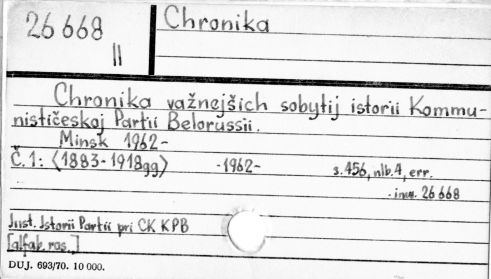 26 668
II
Chronika
Chronika važnejšich sobytij istorii Kommu-
nističeskoj Partii Belorussii.
Minsk 1962-
Č. 1: (1883-1918gg)
-1962-
s. 456, nlb. 4, err.
. inv. 26 668
Inst. Istorii Partii pri CK KPB
[alfab. ras.]
DUJ. 693/70. 10 000.